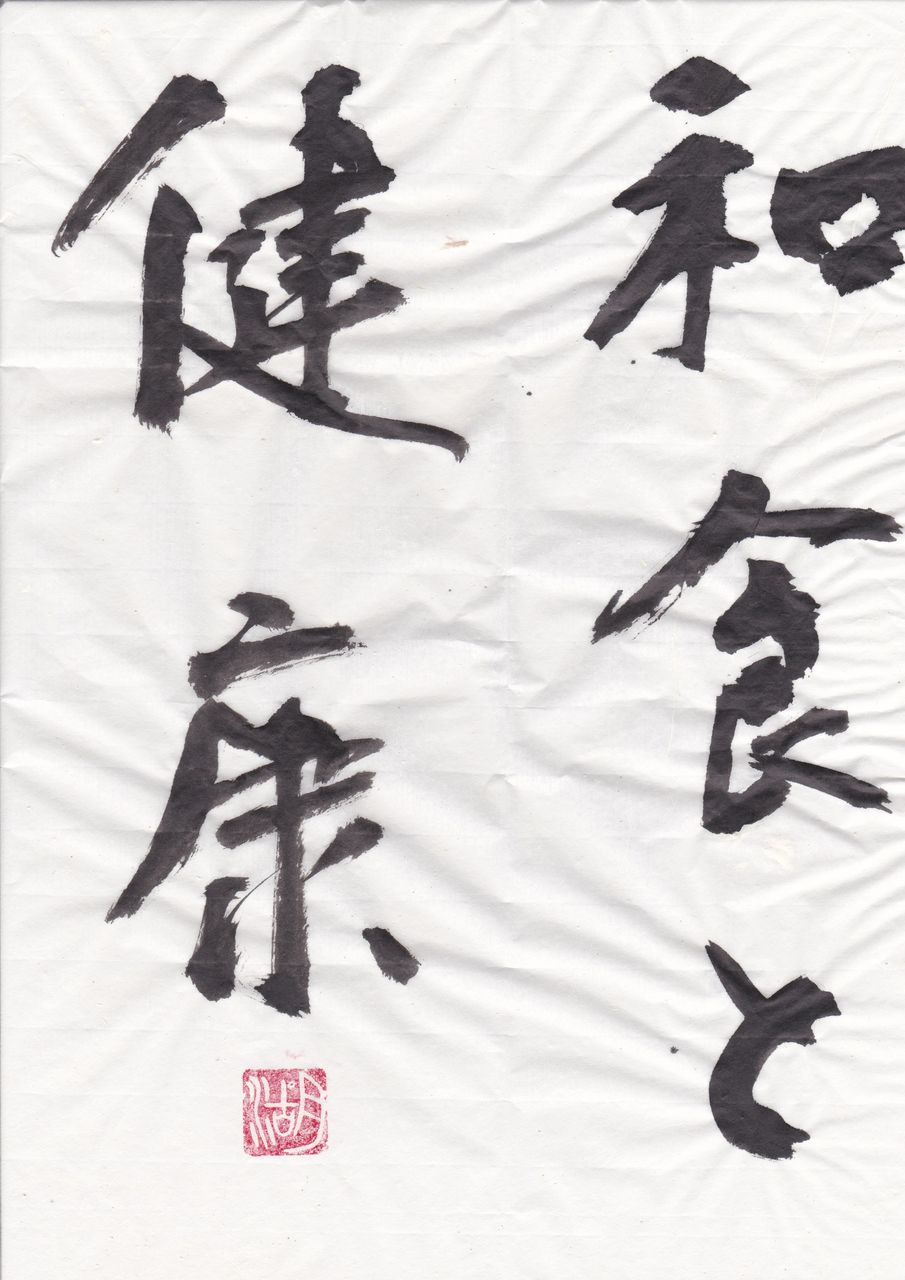 和食と
健康
湖